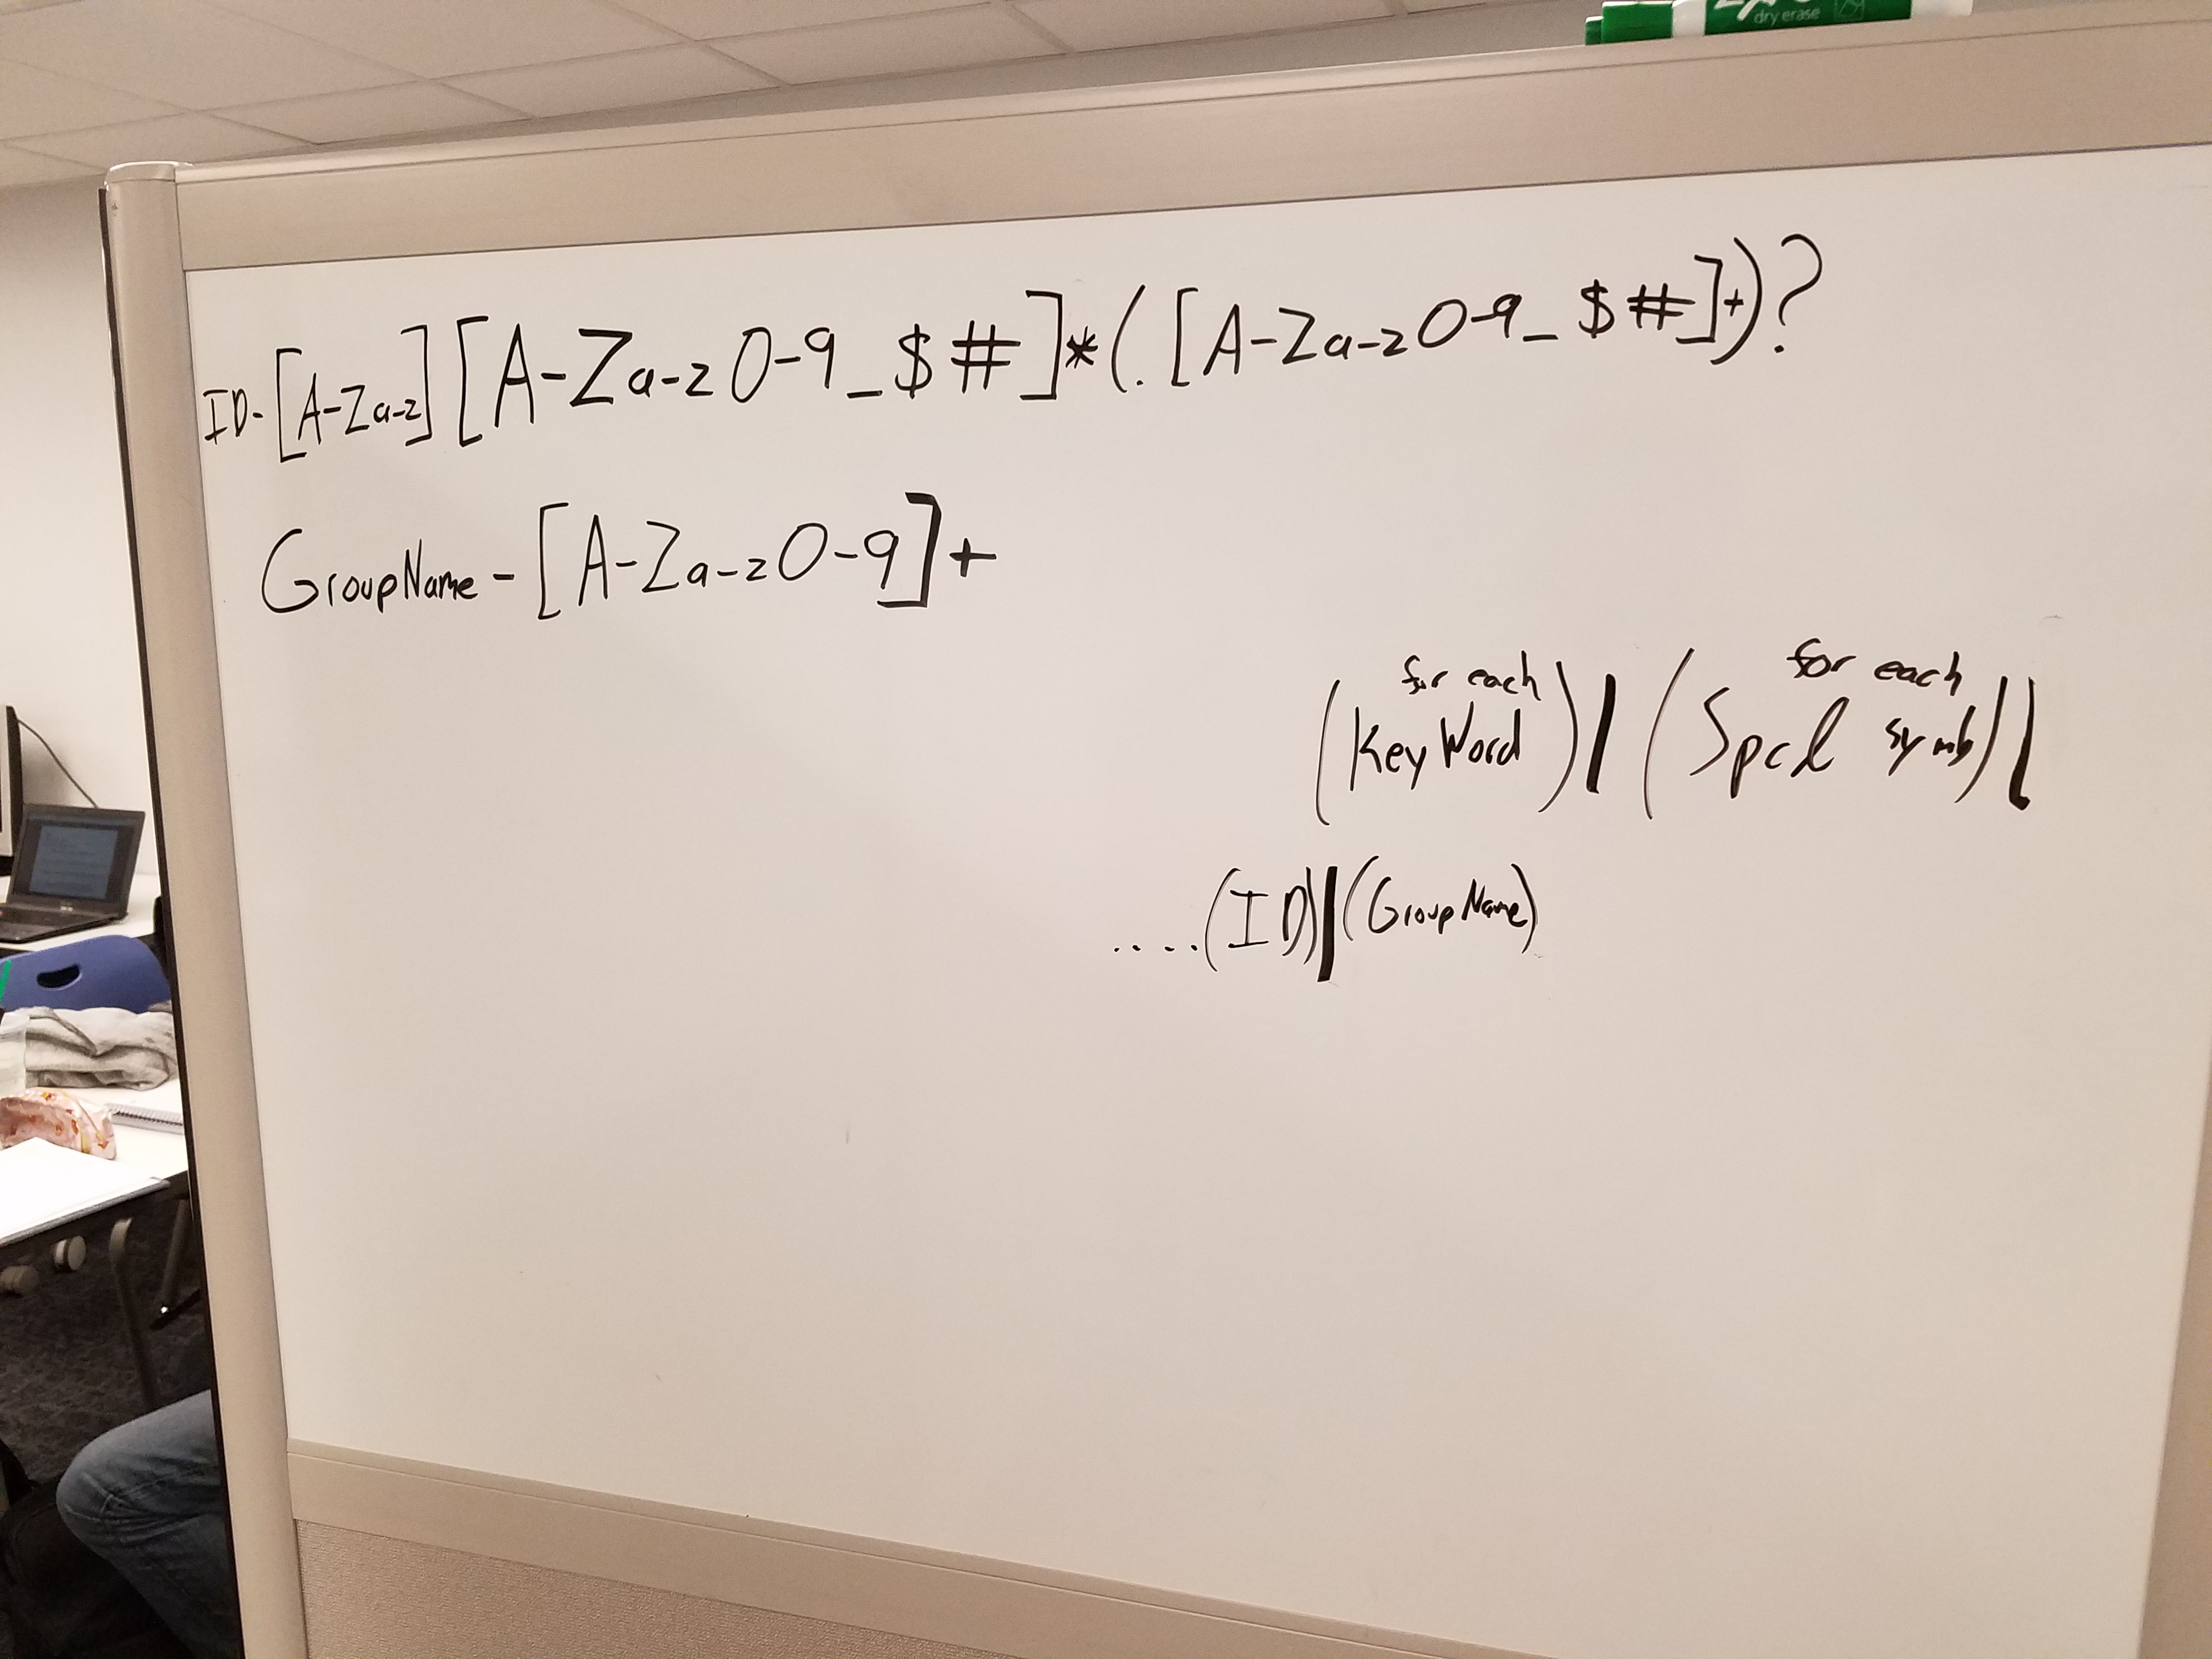 dry erase
ID-[A-Za-z][A-Za-z0-9_$#]*(.[A-Za-z0-9_$#]+)?
GroupName-[A-Za-z0-9]+
for each for each
(KeyWord)|(Spcl symb)|
....(ID)|(GroupName)